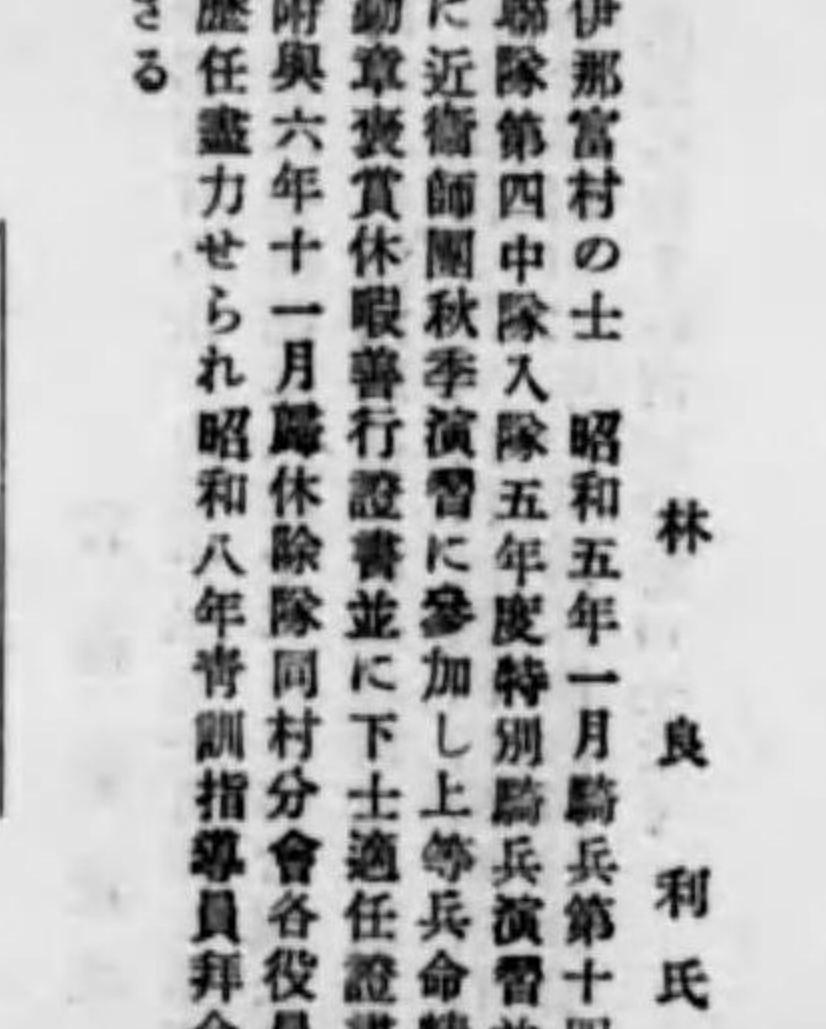 林良利氏
伊那富村の士　昭和五年一月騎兵第十四
聯隊第四中隊入隊五年度特別騎兵演習並
に近衞師團秋季演習に參加し上等兵命
勳章褒賞休暇善行證書並に下士適任證書
附與六年十一月歸休除隊同村分會各役員
歷任盡力せられ昭和八年靑訓指導員拜命
さる